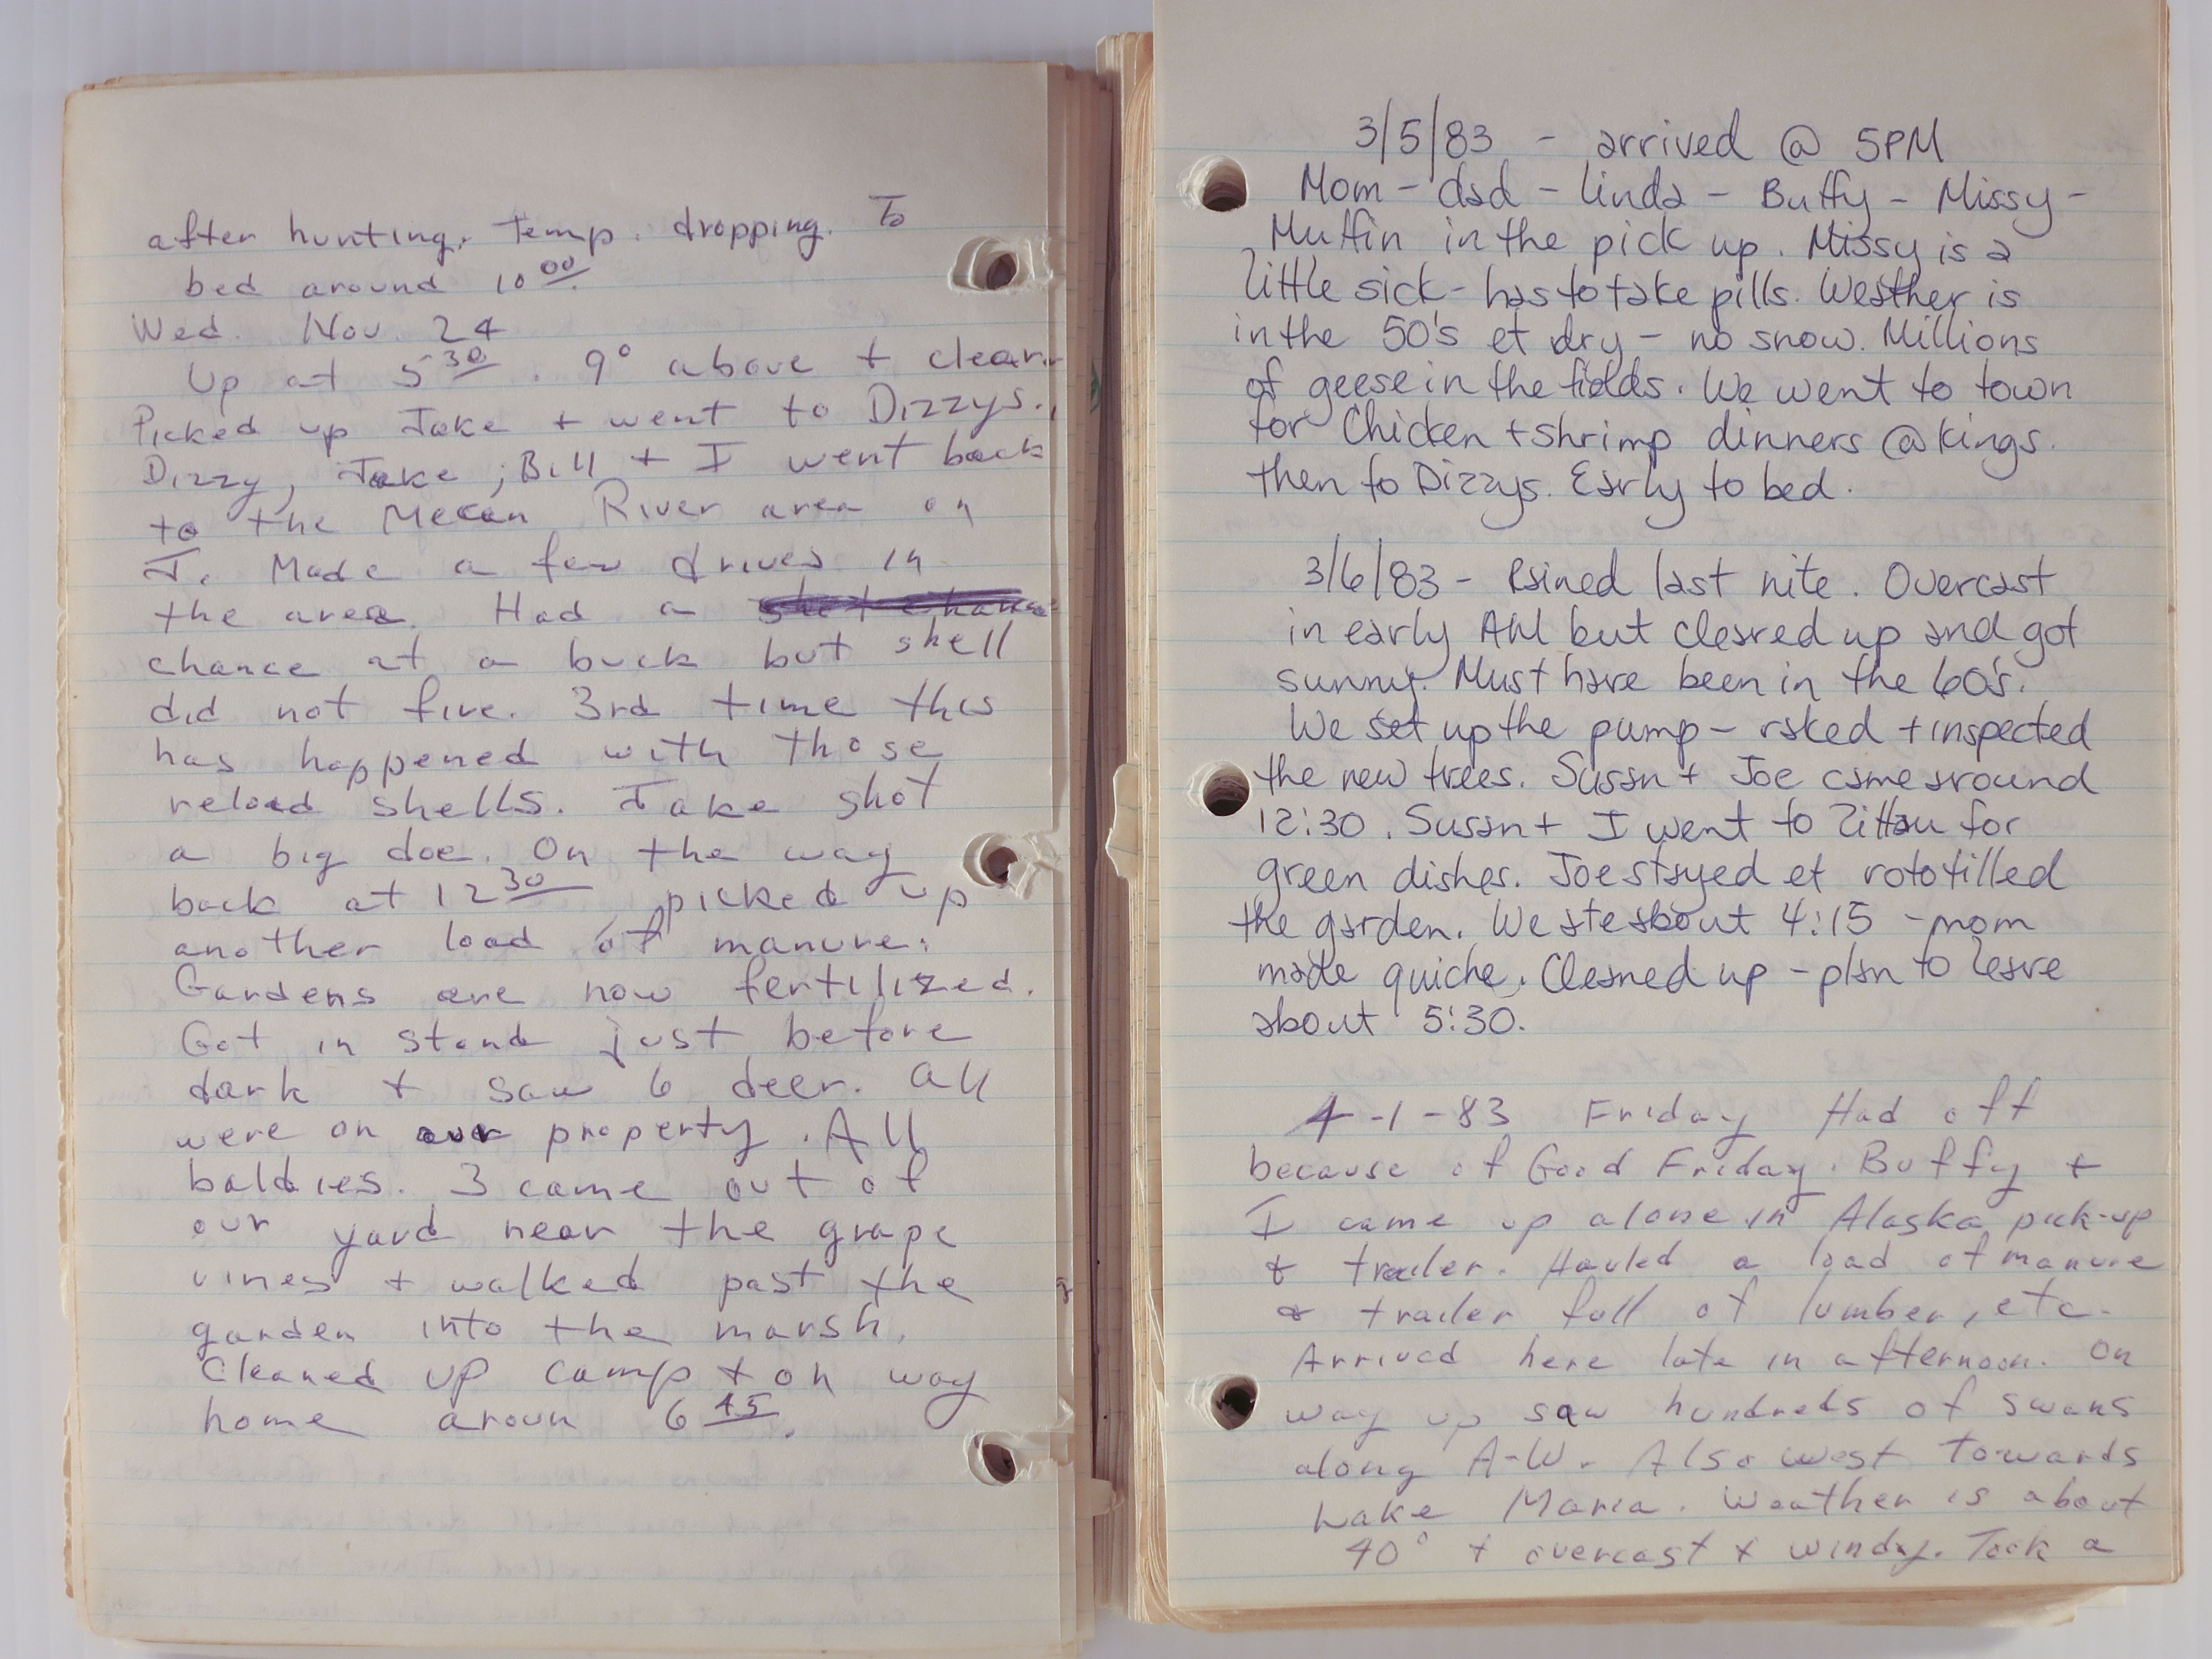 after hunting. Temp. dropping. To
bed around 10 00.
Wed. Nov. 24
Up at 5 30. 9° above + clear.
Picked up Jake + went to Dizzys.
Dizzy, Jake, Bill + I went back
to the Mecan River area on
J. Made a few drives in
the area. Had a
chance at a buck but shell
did not fire. 3rd time this
has happened with those
reload shells. Jake shot
a big doe. On the way
back at 12 30 picked up
another load of manure.
Gardens are now fertilized.
Got in stand just before
dark + saw 6 deer. All
were on our property. All
baldies. 3 came out of
our yard near the grape
vines + walked past the
garden into the marsh.
Cleaned up camp + on way
home aroun 6 45.
3/5/83 - arrived @ 5PM
Mom - dad - linda - Buffy - Missy -
Muffin in the pick up. Missy is a
little sick - has to take pills. Weather is
in the 50's et dry - no snow. Millions
of geese in the fields. We went to town
for Chicken + shrimp dinners @ Kings.
then to Dizzys. Early to bed.
3/6/83 - Rained last nite. Overcast
in early AM but cleared up and got
sunny. Must have been in the 60's.
We set up the pump - raked + inspected
the new trees. Susan + Joe came around
12:30. Susan + I went to Zittau for
green dishes. Joe stayed et rototilled
the garden. We ate about 4:15 - mom
made quiche. Cleaned up - plan to leave
about 5:30.
4-1-83 Friday Had off
because of Good Friday. Buffy +
I came up alone in Alaska pick-up
+ trailer. Hauled a load of manure
+ trailer full of lumber, etc.
Arrived here late in afternoon. On
way up saw hundreds of swans
along A-W. Also west towards
Lake Maria. Weather is about
40° + overcast + windy. Took a